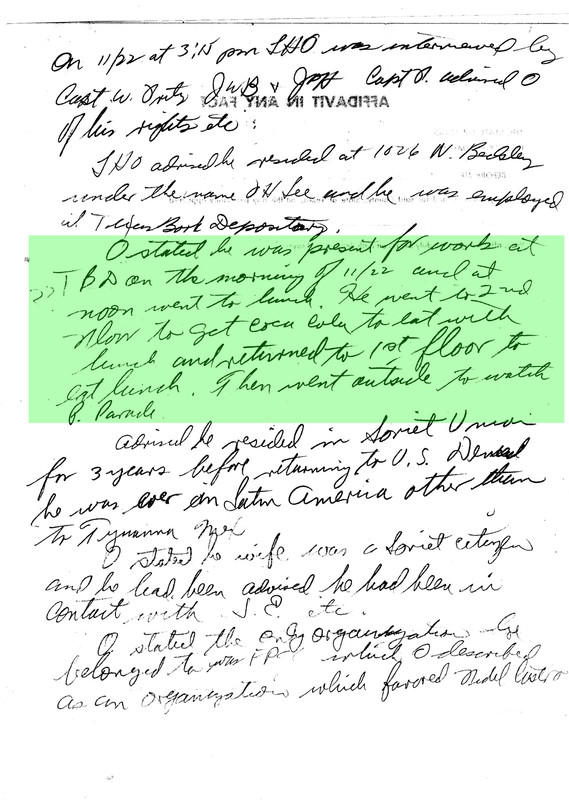 On 11/22 at 3:15 pm LHO was interviewed by
Capt W. Fritz JWB & JPH Capt F. advised O
of his rights etc:
AFFIDAVIT IN ANY FACT
LHO advised he resided at 1026 N. Beckley
under the name OH Lee and he was employed
at Texas Book Depository.
O stated he was present for work at
TBD on the morning of 11/22 and at
noon went to lunch. He went to 2nd
floor to get Coca Cola to eat with
lunch and returned to 1st floor to
eat lunch. Then went outside to watch
P. Parade
advised he resided in Soviet Union
for 3 years before returning to U.S. Denied
he was ever in Latin America other than
to Tijuanna Mex
O stated he wife was a Soviet citizen
and he had been advised he had been in
contact with S.E. etc.
O stated the only organization he
belonged to was FPC which O described
as an organization which favored Fidel Castro